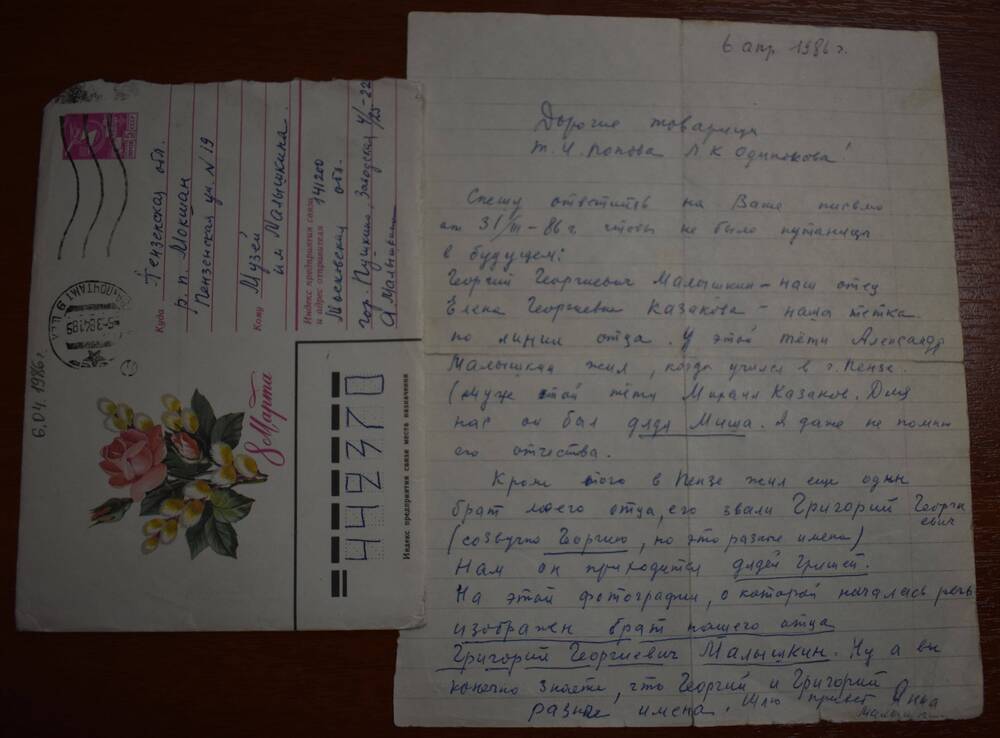 6 апр 1986 г.
Дорогие товарищи
Т. И. Попова Л К Одинокова!
Спешу ответить на Ваше письмо
от 31/III - 86 г чтобы не было путаницы
в будущем:
Георгий Георгиевич Малышкин - наш отец
Елена Георгиевна Казакова - наша тётка
по линии отца. У этой тёти Александр
Малышкин жил, когда учился в г. Пензе.
(муж этой тёти Михаил Казаков. Для
нас он был дядя Миша. Я даже не помню
его отчества.
Кроме того в Пензе жил еще один
брат моего отца, его звали Григорий Георги
евич
(созвучно Георгию, но это разные имена)
Нам он приходится дядей Гришей.
На этой фотографии, о которой началась речь
изображен брат нашего отца
Григорий Георгиевич Малышкин. Ну а вы
конечно знаете, что Георгий и Григорий
разные имена. Шлю привет Анна
Малышкина
Пензенская обл.
Куда
р. п. Мокшан
Пензенская ул. N 19
Кому
Музей
им Малышкина
Индекс предприятия связи
и адрес отправителя
141200
Московская обл.
гор. Пушкино, Заводская
А Малышкина
6.04.1986 г.
8 Марта
442370
Индекс предприятия связи места назначения